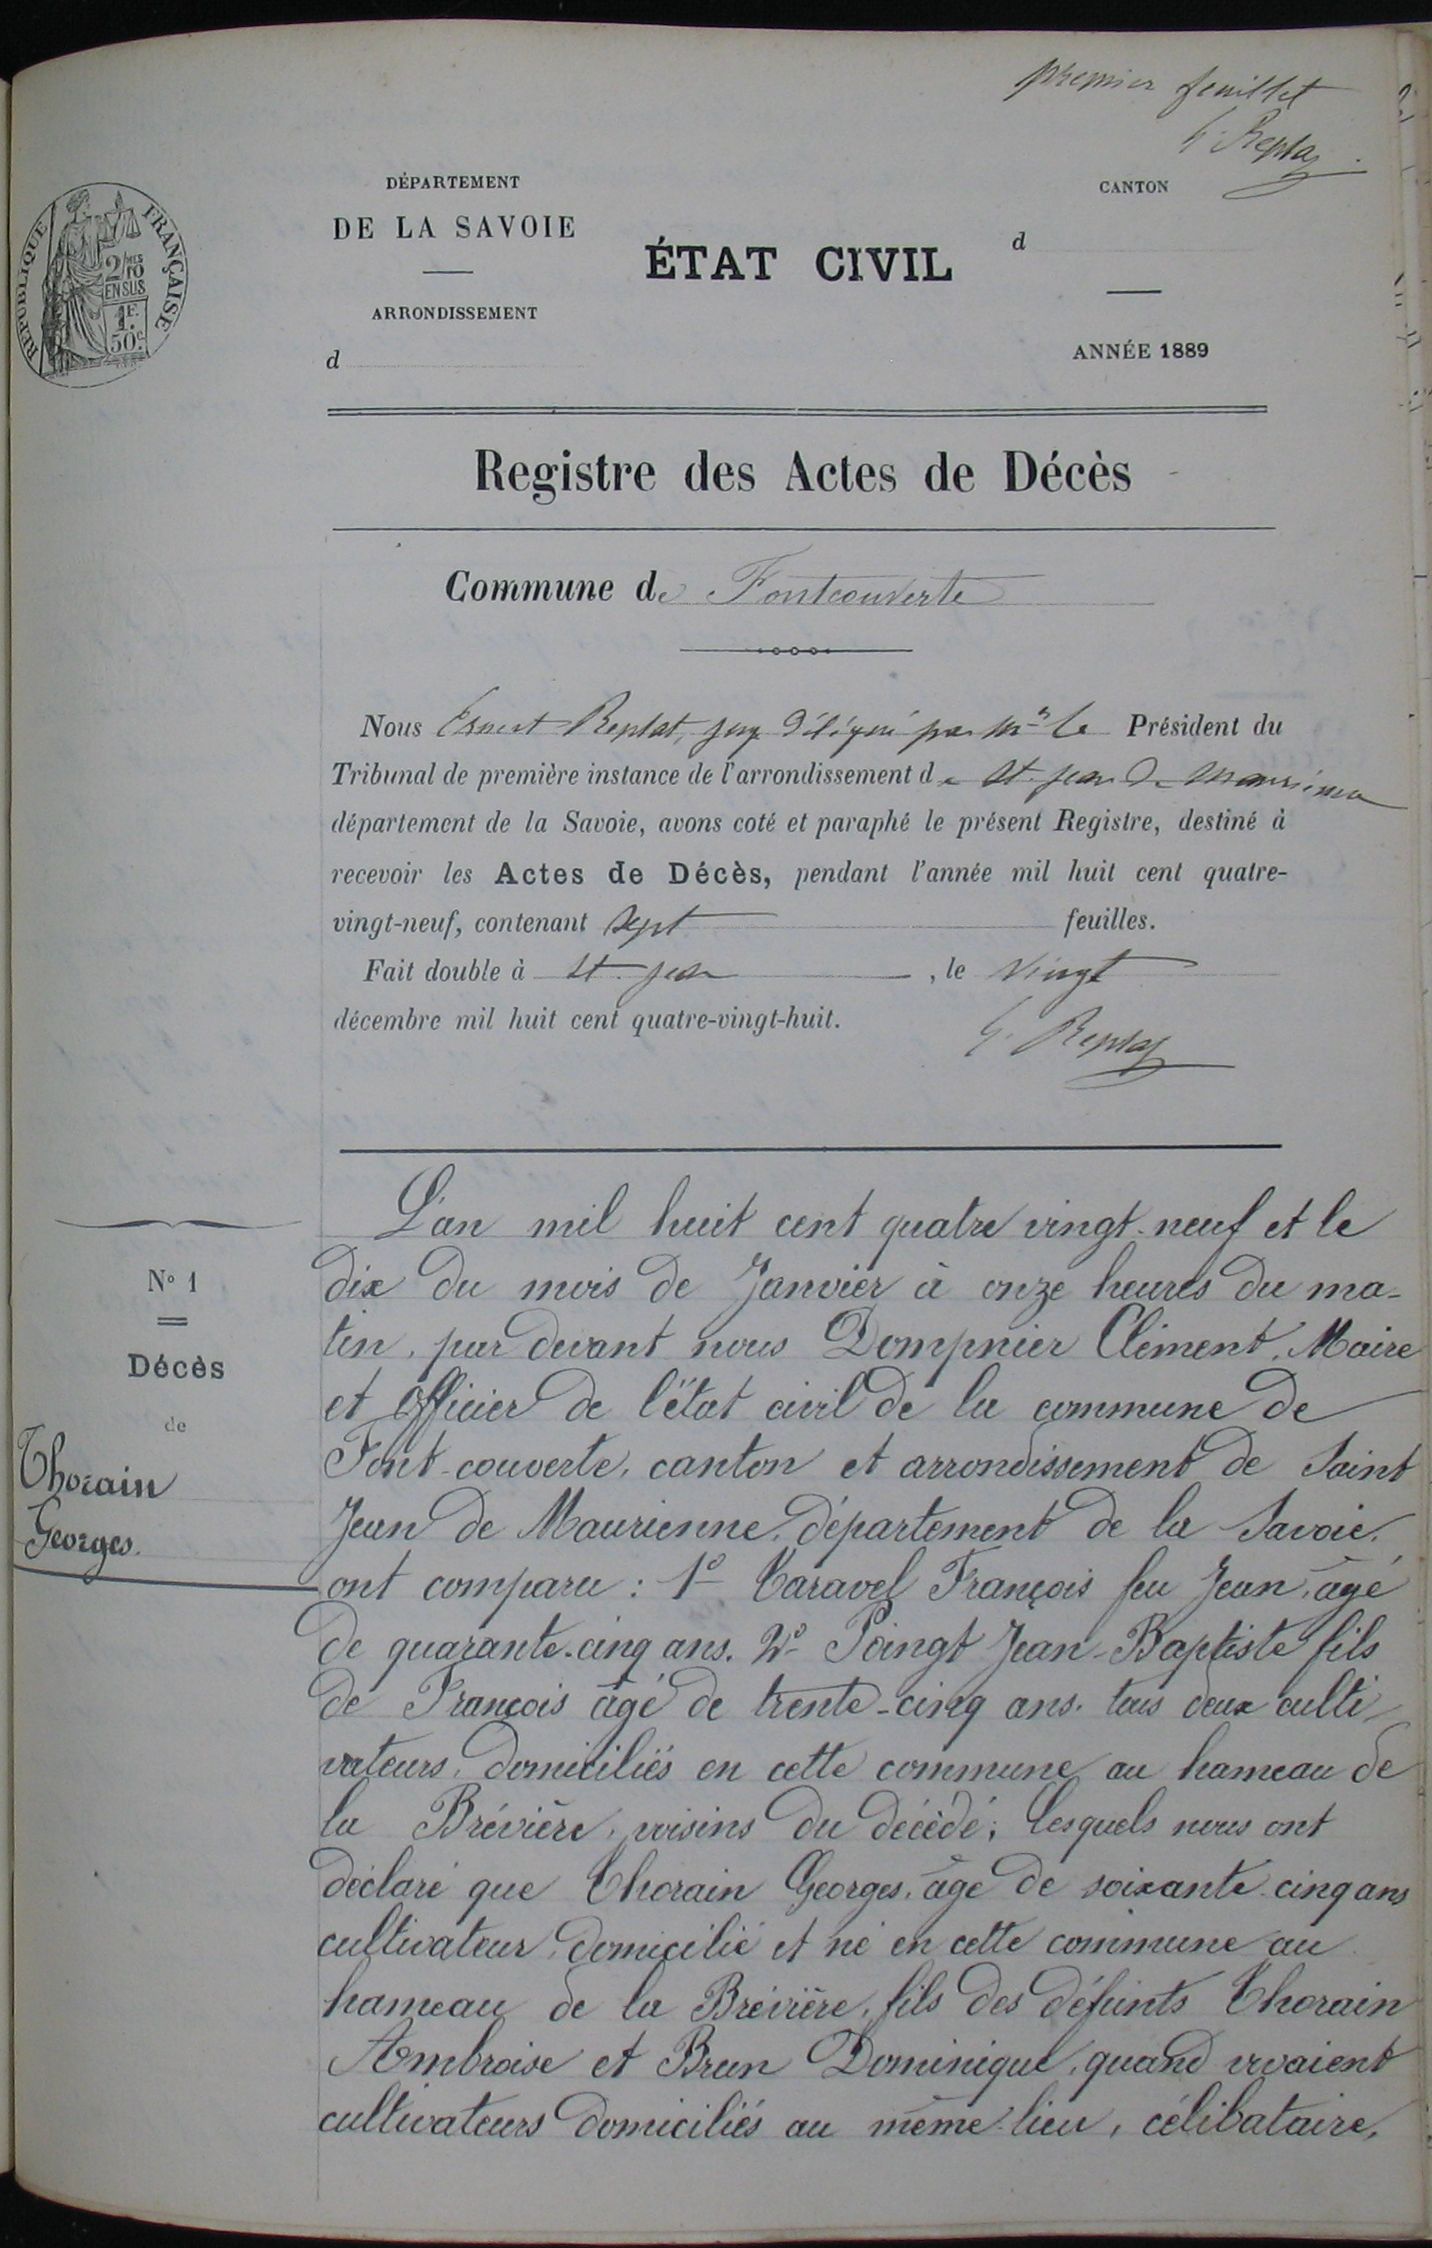 premier feuillet
E. Replat
RÉPUBLIQUE FRANÇAISE
2/10mes
EN SUS
1F.
50c.
DÉPARTEMENT
DE LA SAVOIE
ARRONDISSEMENT
d
ÉTAT CIVIL
CANTON
d
ANNÉE 1889
Registre des Actes de Décès
Commune de Fontcouverte
Nous Ernest Replat, juge délégué par Mr le Président du
Tribunal de première instance de l'arrondissement de St. Jean de Maurienne
département de la Savoie, avons coté et paraphé le présent Registre, destiné à
recevoir les Actes de Décès, pendant l'année mil huit cent quatre-
vingt-neuf, contenant sept feuilles.
Fait double à St. Jean, le vingt
décembre mil huit cent quatre-vingt-huit.
E. Replat
N° 1
Décès
de
Thorain
Georges.
L'an mil huit cent quatre vingt-neuf et le
dix du mois de Janvier à onze heures du ma-
tin, par devant nous Dompnier Clément, Maire
et Officier de l'état civil de la commune de
Font-couverte, canton et arrondissement de Saint
Jean de Maurienne, département de la Savoie,
ont comparu : 1° Taravel François feu Jean, âgé
de quarante-cinq ans. 2° Poingt Jean-Baptiste fils
de François âgé de trente-cinq ans. tous deux culti-
vateurs, domiciliés en cette commune au hameau de
la Brévière, voisins du décédé; lesquels nous ont
déclaré que Thorain Georges, âgé de soixante-cinq ans
cultivateur, domicilié et né en cette commune au
hameau de la Brévière, fils des défunts Thorain
Ambroise et Brun Dominique, quand vivaient
cultivateurs domiciliés au même lieu, célibataire,